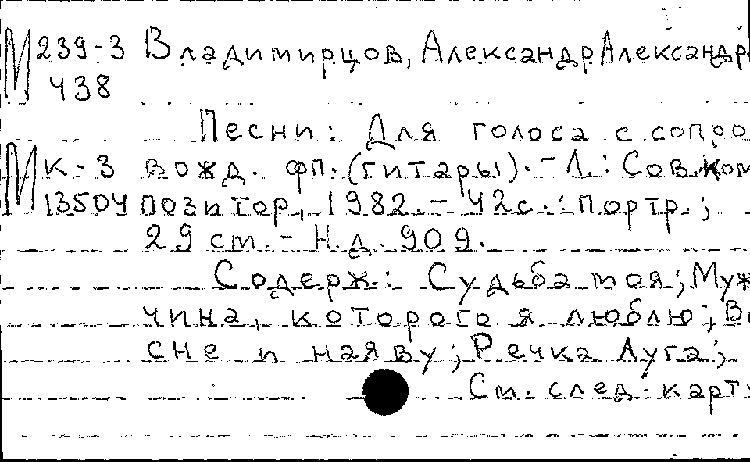 М 239-3 Владимирцов, Александр Александр
438
Песни: Для голоса с сопро
М к-3 вожд. фп. (гитары). - Л.: Сов. ком
13504 позитор, 1982. - 42 с.: портр.;
29 см. - Н.д. 909.
Содерж.: Судьба моя; Муж
чина, которого я люблю; Во
сне и наяву; Речка Луга;
См. след. карт.